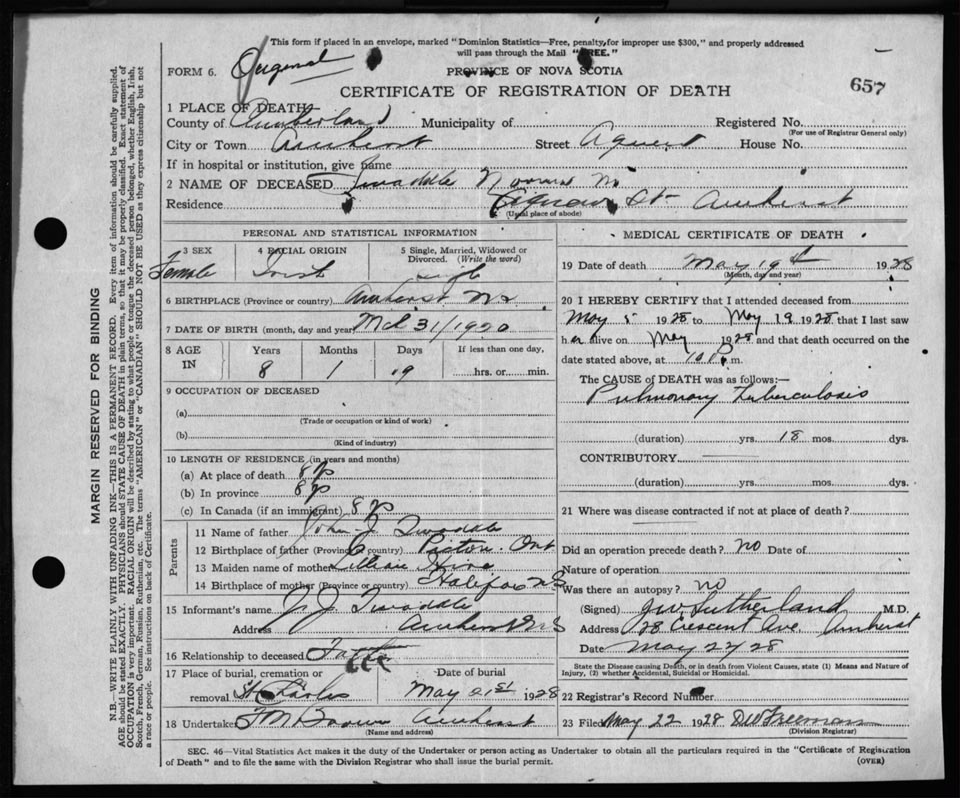 This form if placed in an envelope, marked "Dominion Statistics—Free, penalty for improper use $300," and properly addressed
will pass through the Mail "FREE."
FORM 6.
Original
PROVINCE OF NOVA SCOTIA
657
CERTIFICATE OF REGISTRATION OF DEATH
1 PLACE OF DEATH
County of Cumberland Municipality of Registered No.
(For use of Registrar General only)
City or Town Amherst Street House No.
If in hospital or institution, give name
2 NAME OF DECEASED Twaddle M
Residence St Amherst
(Usual place of abode)
PERSONAL AND STATISTICAL INFORMATION
3 SEX Female
4 RACIAL ORIGIN Irish
5 Single, Married, Widowed or Divorced. (Write the word)
6 BIRTHPLACE (Province or country) Amherst NS
7 DATE OF BIRTH (month, day and year) Mch 31/1920
8 AGE IN Years Months Days If less than one day,
8 1 19 hrs. or min.
9 OCCUPATION OF DECEASED
(a)
(Trade or occupation or kind of work)
(b)
(Kind of industry)
10 LENGTH OF RESIDENCE (in years and months)
(a) At place of death 8 yrs
(b) In province 8 yrs
(c) In Canada (if an immigrant) 8 yrs
Parents
11 Name of father John J Twaddle
12 Birthplace of father (Province or country) Picton. Ont
13 Maiden name of mother Lillian
14 Birthplace of mother (Province or country) Halifax NS
15 Informant's name J J Twaddle
Address Amherst NS
16 Relationship to deceased Father
17 Place of burial, cremation or removal St Charles
Date of burial May 21st 1928
18 Undertaker F M Brown Amherst
(Name and address)
MEDICAL CERTIFICATE OF DEATH
19 Date of death May 19th 1928
(Month, day and year)
20 I HEREBY CERTIFY that I attended deceased from
May 5 1928 to May 19 1928 that I last saw
her alive on May 1928 and that death occurred on the
date stated above, at 10 P m.
The CAUSE OF DEATH was as follows:—
Pulmonary Tuberculosis
(duration) yrs. 18 mos. dys.
CONTRIBUTORY
(duration) yrs. mos. dys.
21 Where was disease contracted if not at place of death?
Did an operation precede death? no Date of
Nature of operation
Was there an autopsy? no
(Signed) J.W. Sutherland M.D.
Address 28 Crescent Ave. Amherst
Date May 22 28
State the Disease causing Death, or in death from Violent Causes, state (1) Means and Nature of
Injury, (2) whether Accidental, Suicidal or Homicidal.
22 Registrar's Record Number
23 Filed May 22 1928 DW Freeman
(Division Registrar)
SEC. 46—Vital Statistics Act makes it the duty of the Undertaker or person acting as Undertaker to obtain all the particulars required in the "Certificate of Registration
of Death" and to file the same with the Division Registrar who shall issue the burial permit.
(OVER)
MARGIN RESERVED FOR BINDING
N.B.—WRITE PLAINLY WITH UNFADING INK—THIS IS A PERMANENT RECORD. Every item of information should be carefully supplied.
AGE should be stated EXACTLY. PHYSICIANS should STATE CAUSE OF DEATH in plain terms, so that it may be properly classified. Exact statement of
OCCUPATION is very important. RACIAL ORIGIN will be described by stating to what people or tongue the deceased person belonged, whether English, Irish,
Scotch, French, German, Russian, Ruthenian, etc. The terms "AMERICAN" or "CANADIAN" SHOULD NOT BE USED as they express citizenship but not
a race or people. See instructions on back of Certificate.